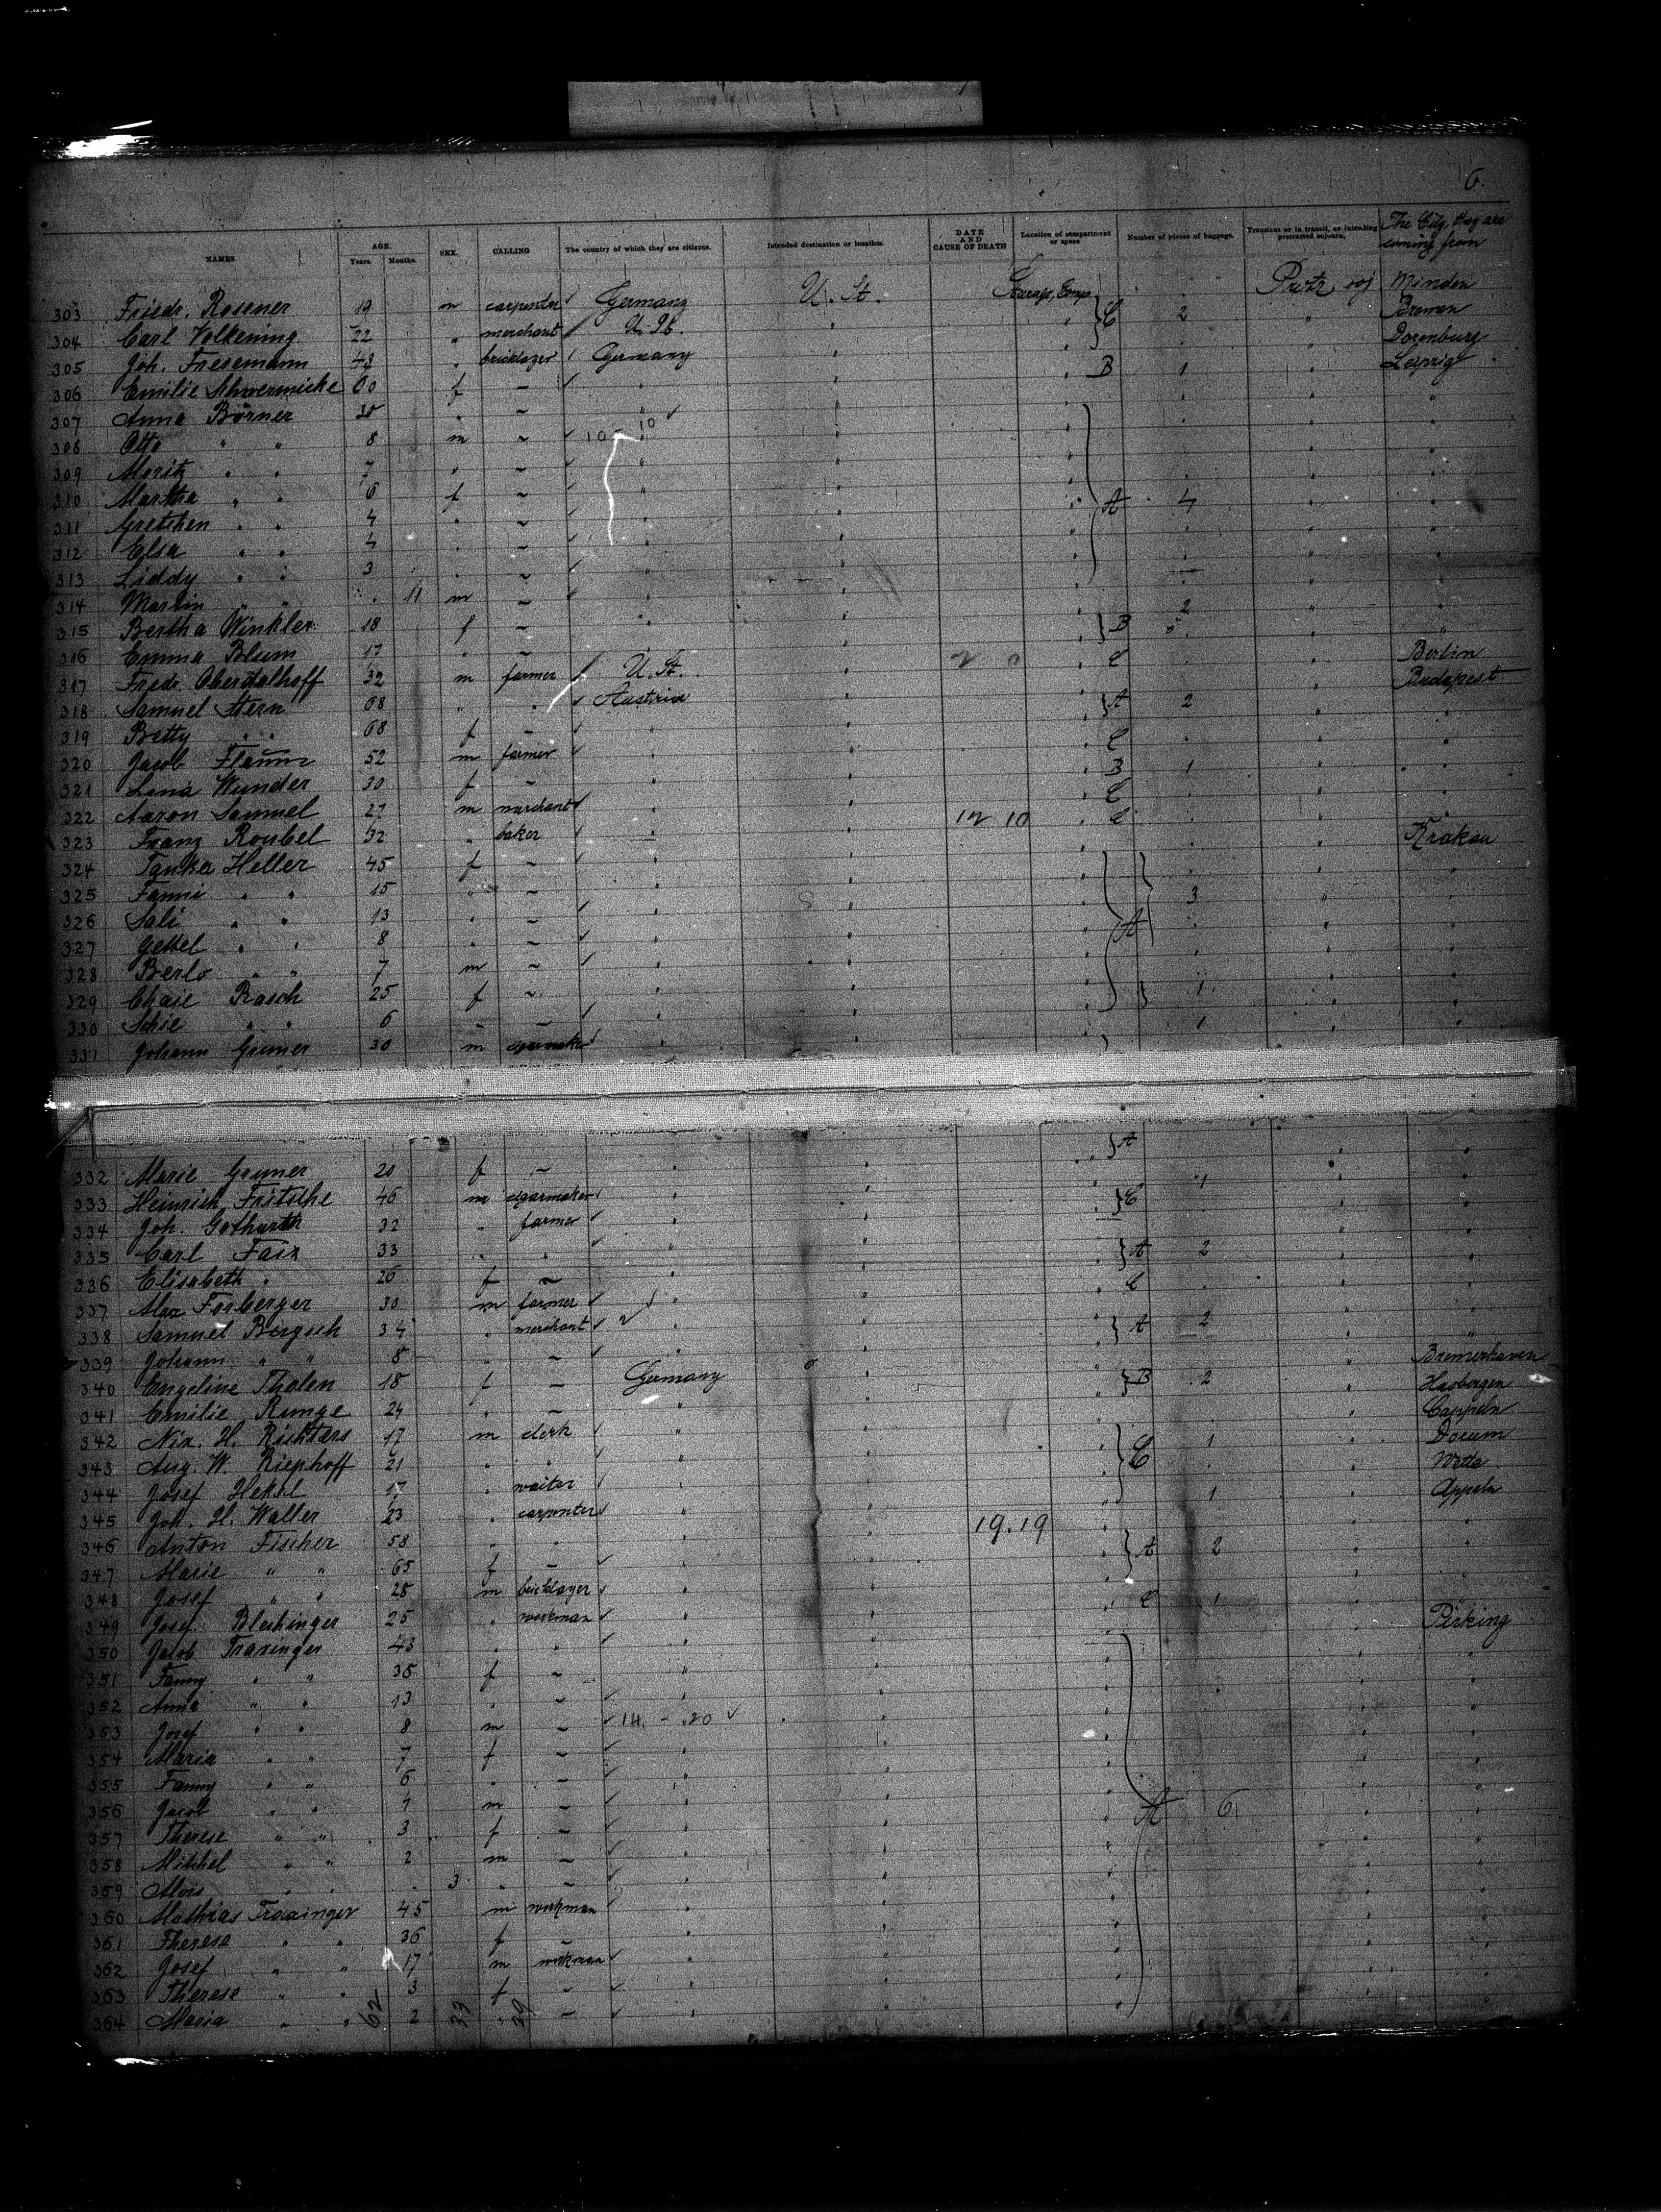 6.
NAMES AGE. Years. Months. SEX. CALLING The country of which they are citizens. Intended destination or location. DATE AND CAUSE OF DEATH Location of compartment or space Number of pieces of baggage. Transient or in transit, or intending protracted sojourn. The City they are coming from
303 Friedr. Rosener 19 m carpenter Germany U. St. Minden
304 Carl Volkening 22 " merchant U. St. " C 2 " Bremen
305 Joh. Fresemann 43 " bricklayer Germany "
306 Emilie Schwermicke 60 f — " " B 1 " Leipzig
307 Anna Börner 30 " — " " "
308 Otto " " 8 m — 10 10 " "
309 Moritz " " 7 " — " " "
310 Martha " " 6 f — " " "
311 Gretchen " " 4 " — " " A 4 " "
312 Elsa " " 4 " — " " "
313 Liddy " " 3 " — " " "
314 Martin " " 11 m — " "
315 Bertha Winkler 18 f — " " B 2 " "
316 Emma Blum 17 " — " "
317 Friedr. Oberdalhoff 32 m farmer U. St. " C Berlin
318 Samuel Stern 68 " " Austria " A 2 Budapest
319 Betty " " 68 f — " "
320 Jacob Flamm 52 m farmer " " C
321 Lena Wunder 30 f — " " B 1
322 Aaron Samuel 27 m merchant " " C
323 Franz Roubel 32 " baker " " 12 10 C
324 Tauba Heller 45 f — " " Krakau
325 Fanni " " 15 " — " "
326 Sali " " 13 " — " " 3
327 " " 8 " — " " A
328 Berlo " " 7 m — " "
329 Chaie Rasch 25 f — " " 1
330 Schie " " 6 — " "
331 Johann Gruner 30 m cigarmaker " " 1
332 Marie Gruner 20 f — " " A
333 Heinrich Fritsche 46 m cigarmaker " " C 1
334 Joh. Gotharth 32 " farmer " "
335 Carl Faix 33 " " " " A 2
336 Elisabeth " 26 f — " "
337 Max Forberger 30 m farmer " " C
338 Samuel Bergsch 34 " merchant " A 2
339 Johann " " 8 " — "
340 Engeline Thalen 18 f — Germany " B 2 Bremerhaven
341 Emilie Runge 24 " — " " Hasbergen
342 Nix. H. Richters 17 m clerk " " Cappeln
343 Aug. W. Riephoff 21 " " " " C 1 Dorum
344 Josef Hekel 17 " waiter " "
345 Joh. H. Waller 23 " carpenter " " 1 Appeln
346 Anton Fischer 58 " " " " 19.19
347 Marie " " 65 f — " " A 2
348 Josef " " 28 m bricklayer " "
349 Josef Bleihinger 25 " workman " " C 1
350 Jacob Traxinger 43 " " " " Pirking
351 Fanny " " 35 f — " "
352 Anna " " 13 " — " "
353 Josef " " 8 m — 14 - 20 "
354 Maria " " 7 f — " "
355 Fanny " " 6 " — " "
356 Jacob " " 4 m — " " A 6
357 Therese " " 3 f — " "
358 Michel " " 2 m — " "
359 Alois " " 3 " — " "
360 Mathias Traxinger 45 m workman " "
361 Therese " " 36 f — " "
362 Josef " " 17 m workman " "
363 Therese " " 3 f — " "
364 Maria " " 2 " — " "
62 33 29